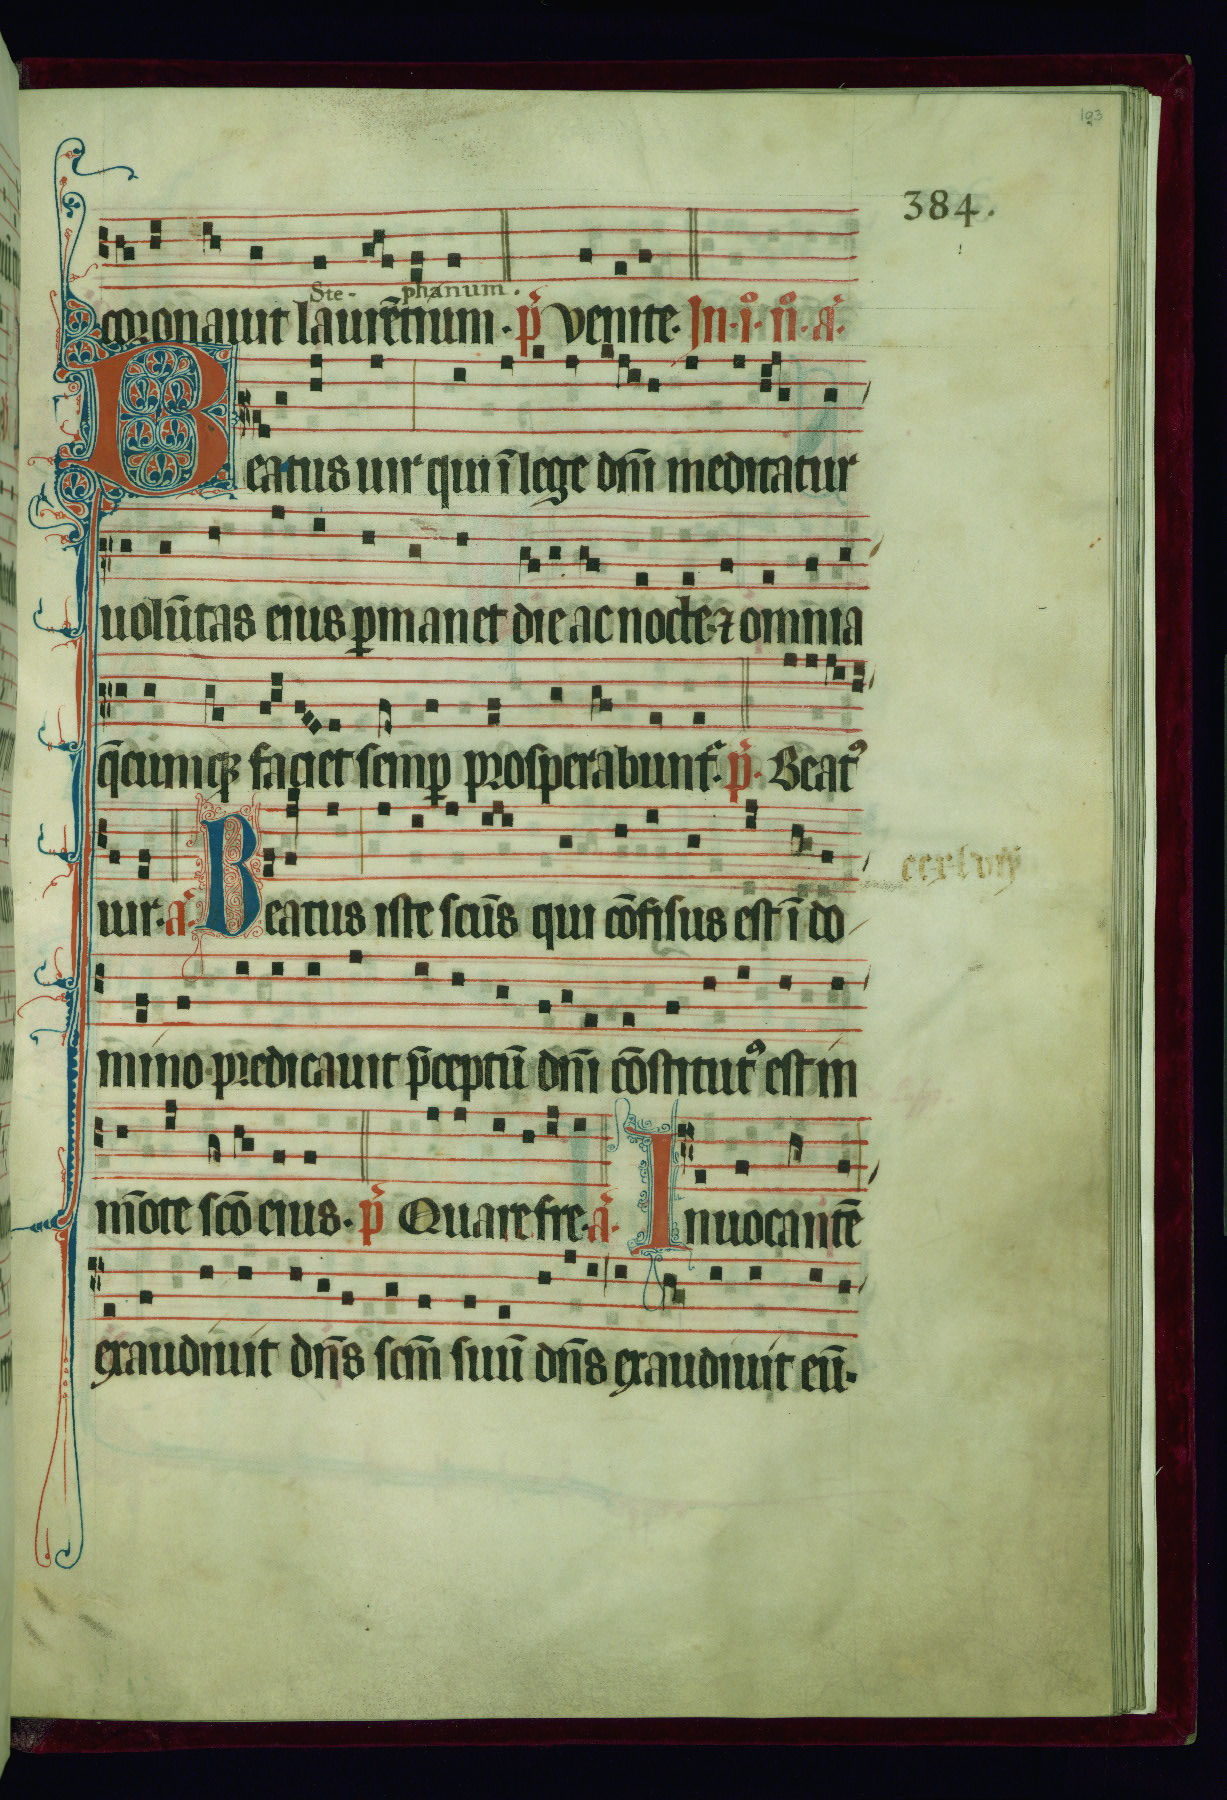 193
384.
Ste- phanum.
coronauit laurētium. p̄ venite. In. i̊. n̊. a̾.
Beatus uir qui ī lege dn̄i meditatur
uolūtas eius ꝑmanet die ac nocte. ⁊ omnia
q̄cumqꝫ faciet semꝑ prosperabunt᷑. p̄. Beatꝰ
uir. a̾. Beatus iste scūs qui cōfisus est ī do
ccxlviij
mino predicauit p̄ceptū dn̄i cōstitutꝰ est in
mōte scō eius. p̄ Quare fre. a̾. Inuocantē
exaudiuit dn̄s scm̄ suū dn̄s exaudiuit eū.